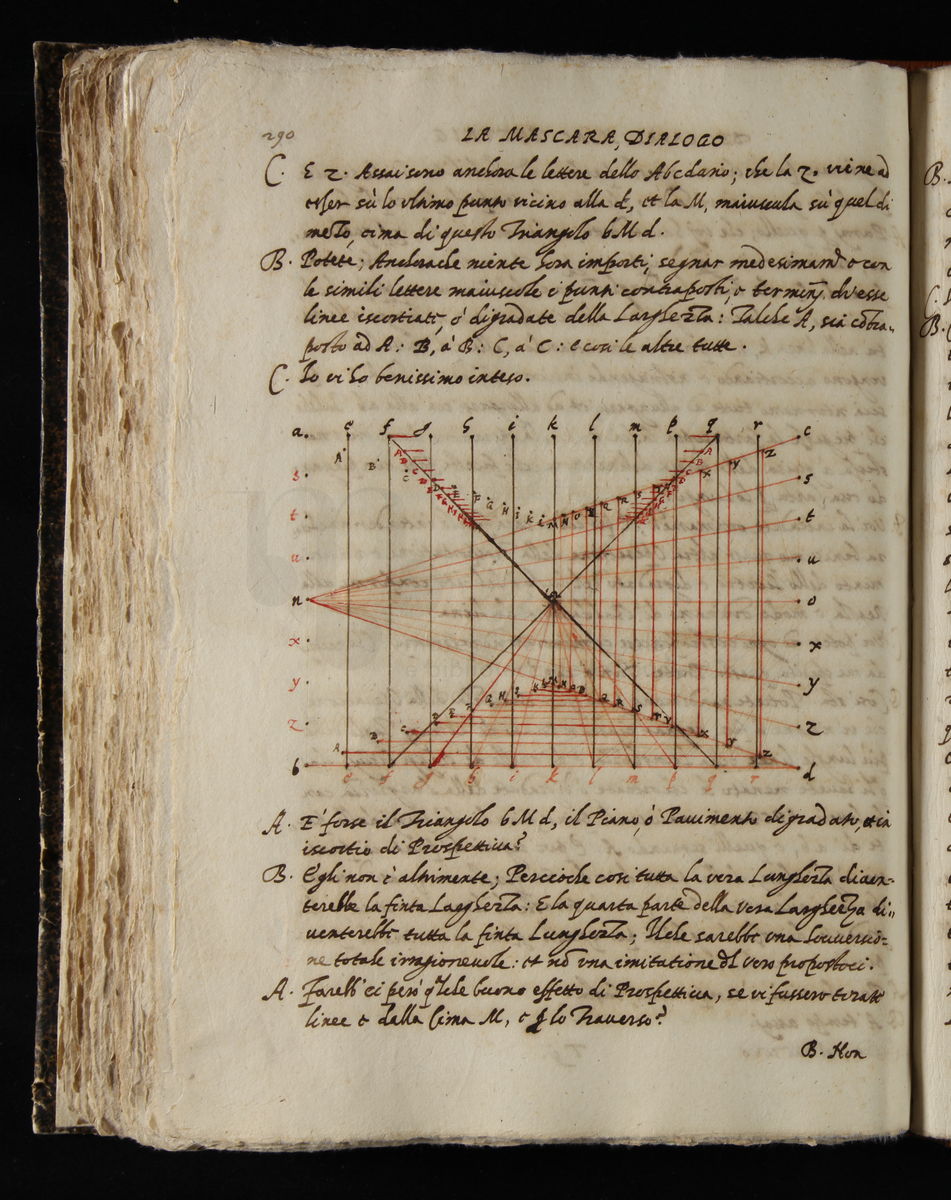 290
LA MASCARA, DIALOGO
C. E z. Assai sono anchora le lettere dello Abcdario; che la z. viene ad
esser sù lo vltimo punto vicino alla d, et la M, maiuscula sù quel di
mezo, cima di questo Triangolo b M d.
B. Potete; Anchorache niente hora importi, segnar medesimam.te con
le simili lettere maiuscole i punti contraposti, o termini di esse
linee iscortiate, ò digradate della Larghezza: Talche A, sia cōtra„
posto ad A: B, à B: C, à C: e cosi le altre tutte.
C. Io vi hò benissimo inteso.
a. e f g h i k l m p q r c
s s
t t
u u
n o
x x
y y
z z
b d
e f g h i k l m p q r
A. E' forse il Triangolo b M d, il Piano, ò Pavimento digradato, et in
iscortio di Prospettiua?
B. Egli non è altrimente; Percioche cosi tutta la vera Lunghezza diuen-
terebbe la finta Larghezza: E la quarta parte della vera Larghezza di„
uenterebbe tutta la finta Lunghezza; Ilche sarebbe vna souuersio=
ne totale irragioneuole: et nō vna imitatione del vero propostoci.
A. Farebb'ei però q.lche buono effetto di Prospettiua, se vi fussero tirate
linee e dalla Cima M, e p lo Trauerso?
B. Non